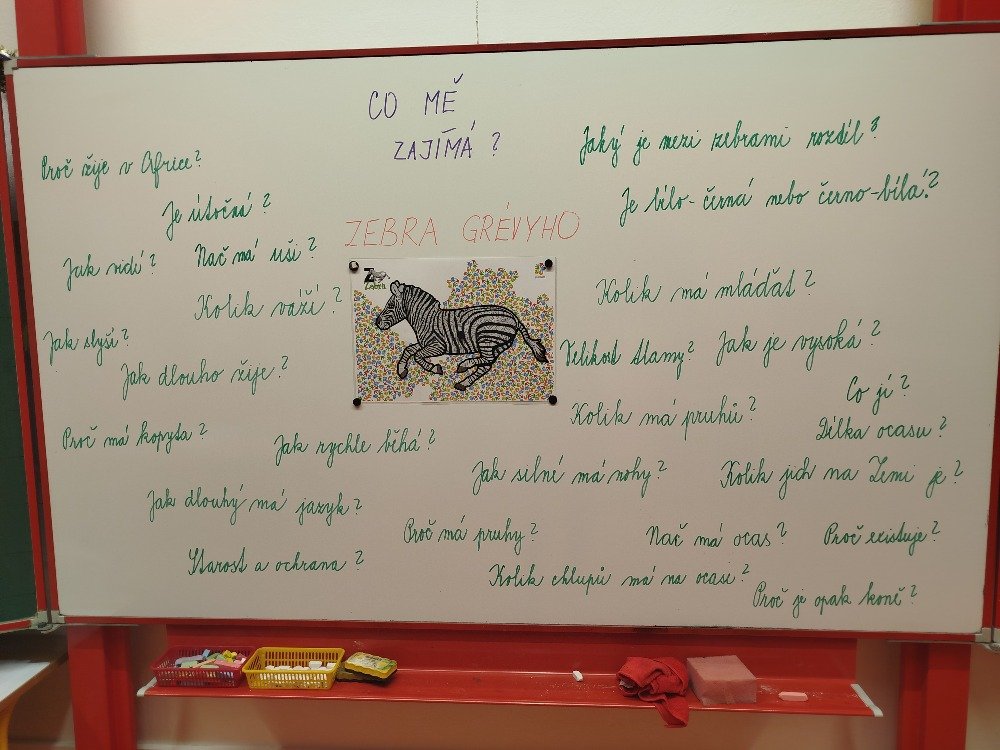 CO MĚ
ZAJÍMÁ?
Proč žije v Africe?
Jaký je mezi zebrami rozdíl?
Je útočná?
Je bílo-černá nebo černo-bílá?
ZEBRA GRÉVYHO
Jak vidí?
Nač má uši?
Zebra
Kolik váží?
Kolik má mláďat?
Jak slyší?
Velikost tlamy?
Jak je vysoká?
Jak dlouho žije?
Co jí?
Kolik má pruhů?
Délka ocasu?
Proč má kopyta?
Jak rychle běhá?
Jak silné má nohy?
Kolik jich na Zemi je?
Jak dlouhý má jazyk?
Proč má pruhy?
Nač má ocas?
Proč existuje?
Starost a ochrana?
Kolik chlupů má na ocase?
Proč je opak koně?